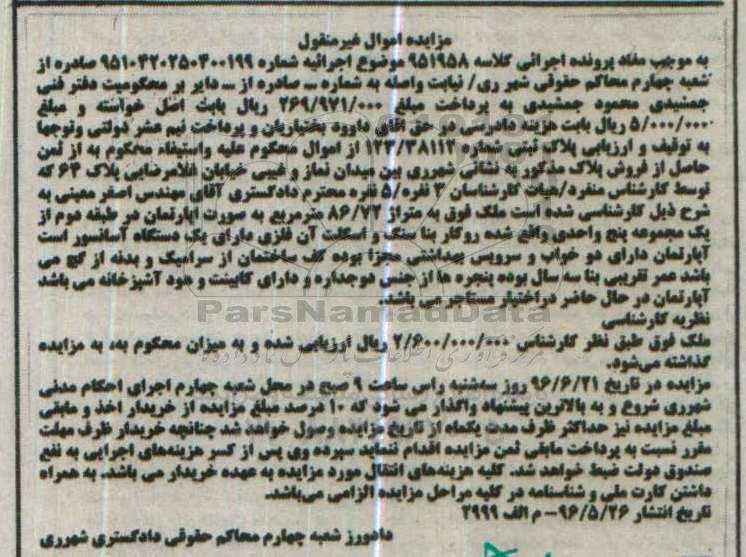 مزایده اموال غیرمنقول
به موجب مفاد پرونده اجرائی کلاسه ۹۵۱۹۵۸ موضوع اجرائیه شماره ۹۵۱۰۴۲۰۲۵۰۳۰۰۱۹۹ صادره از
شعبه چهارم محاکم حقوقی شهر ری/ نیابت واصله به شماره ــ صادره از ــ دایر بر محکومیت دفتر فنی
جمشیدی محمود جمشیدی به پرداخت مبلغ ۲۶۹/۹۷۱/۰۰۰ ریال بابت اصل خواسته و مبلغ
۵/۰۰۰/۰۰۰ ریال بابت هزینه دادرسی در حق آقای داوود بختیاریان و پرداخت نیم عشر دولتی وتوجها
به توقیف و ارزیابی پلاک ثبتی شماره ۱۲۳/۳۸۱۱۲ از اموال محکوم علیه واستیفاء محکوم به از ثمن
حاصل از فروش پلاک مذکور به نشانی شهرری بین میدان نماز و غیبی خیابان غلامرضایی پلاک ۶۴ که
توسط کارشناس منفرد/هیات کارشناسان ۳ نفره/۵ نفره محترم دادگستری آقای مهندس اصغر معینی به
شرح ذیل کارشناسی شده است ملک فوق به متراژ ۸۶/۷۲ مترمربع به صورت آپارتمان در طبقه دوم از
یک مجموعه پنج واحدی واقع شده روکار بنا سنگ و اسکلت آن فلزی دارای یک دستگاه آسانسور است
آپارتمان دارای دو خواب و سرویس بهداشتی مجزا بوده کف ساختمان از سرامیک و بدنه از گچ می
باشد عمر تقریبی بنا سه سال بوده پنجره ها از جنس دوجداره و دارای کابینت و هود آشپزخانه می باشد
آپارتمان در حال حاضر دراختیار مستاجر می باشد.
ParsNamadData
نظریه کارشناسی
ملک فوق طبق نظر کارشناس ۲/۶۰۰/۰۰۰/۰۰۰ ریال ارزیابی شده و به میزان محکوم به، به مزایده
گذاشته می‌شود.
مزایده در تاریخ ۹۶/۶/۲۱ روز سه‌شنبه راس ساعت ۹ صبح در محل شعبه چهارم اجرای احکام مدنی
شهرری شروع و به بالاترین پیشنهاد واگذار می شود که ۱۰ درصد مبلغ مزایده از خریدار اخذ و مابقی
مبلغ مزایده نیز حداکثر ظرف مدت یکماه از تاریخ مزایده وصول خواهد شد چنانچه خریدار ظرف مهلت
مقرر نسبت به پرداخت مابقی ثمن مزایده اقدام ننماید سپرده وی پس از کسر هزینه‌های اجرایی به نفع
صندوق دولت ضبط خواهد شد. کلیه هزینه‌های انتقال مورد مزایده به عهده خریدار می باشد. به همراه
داشتن کارت ملی و شناسنامه در کلیه مراحل مزایده الزامی می‌باشد.
تاریخ انتشار ۹۶/۵/۲۶– م الف ۲۹۹۹
دادورز شعبه چهارم محاکم حقوقی دادگستری شهرری